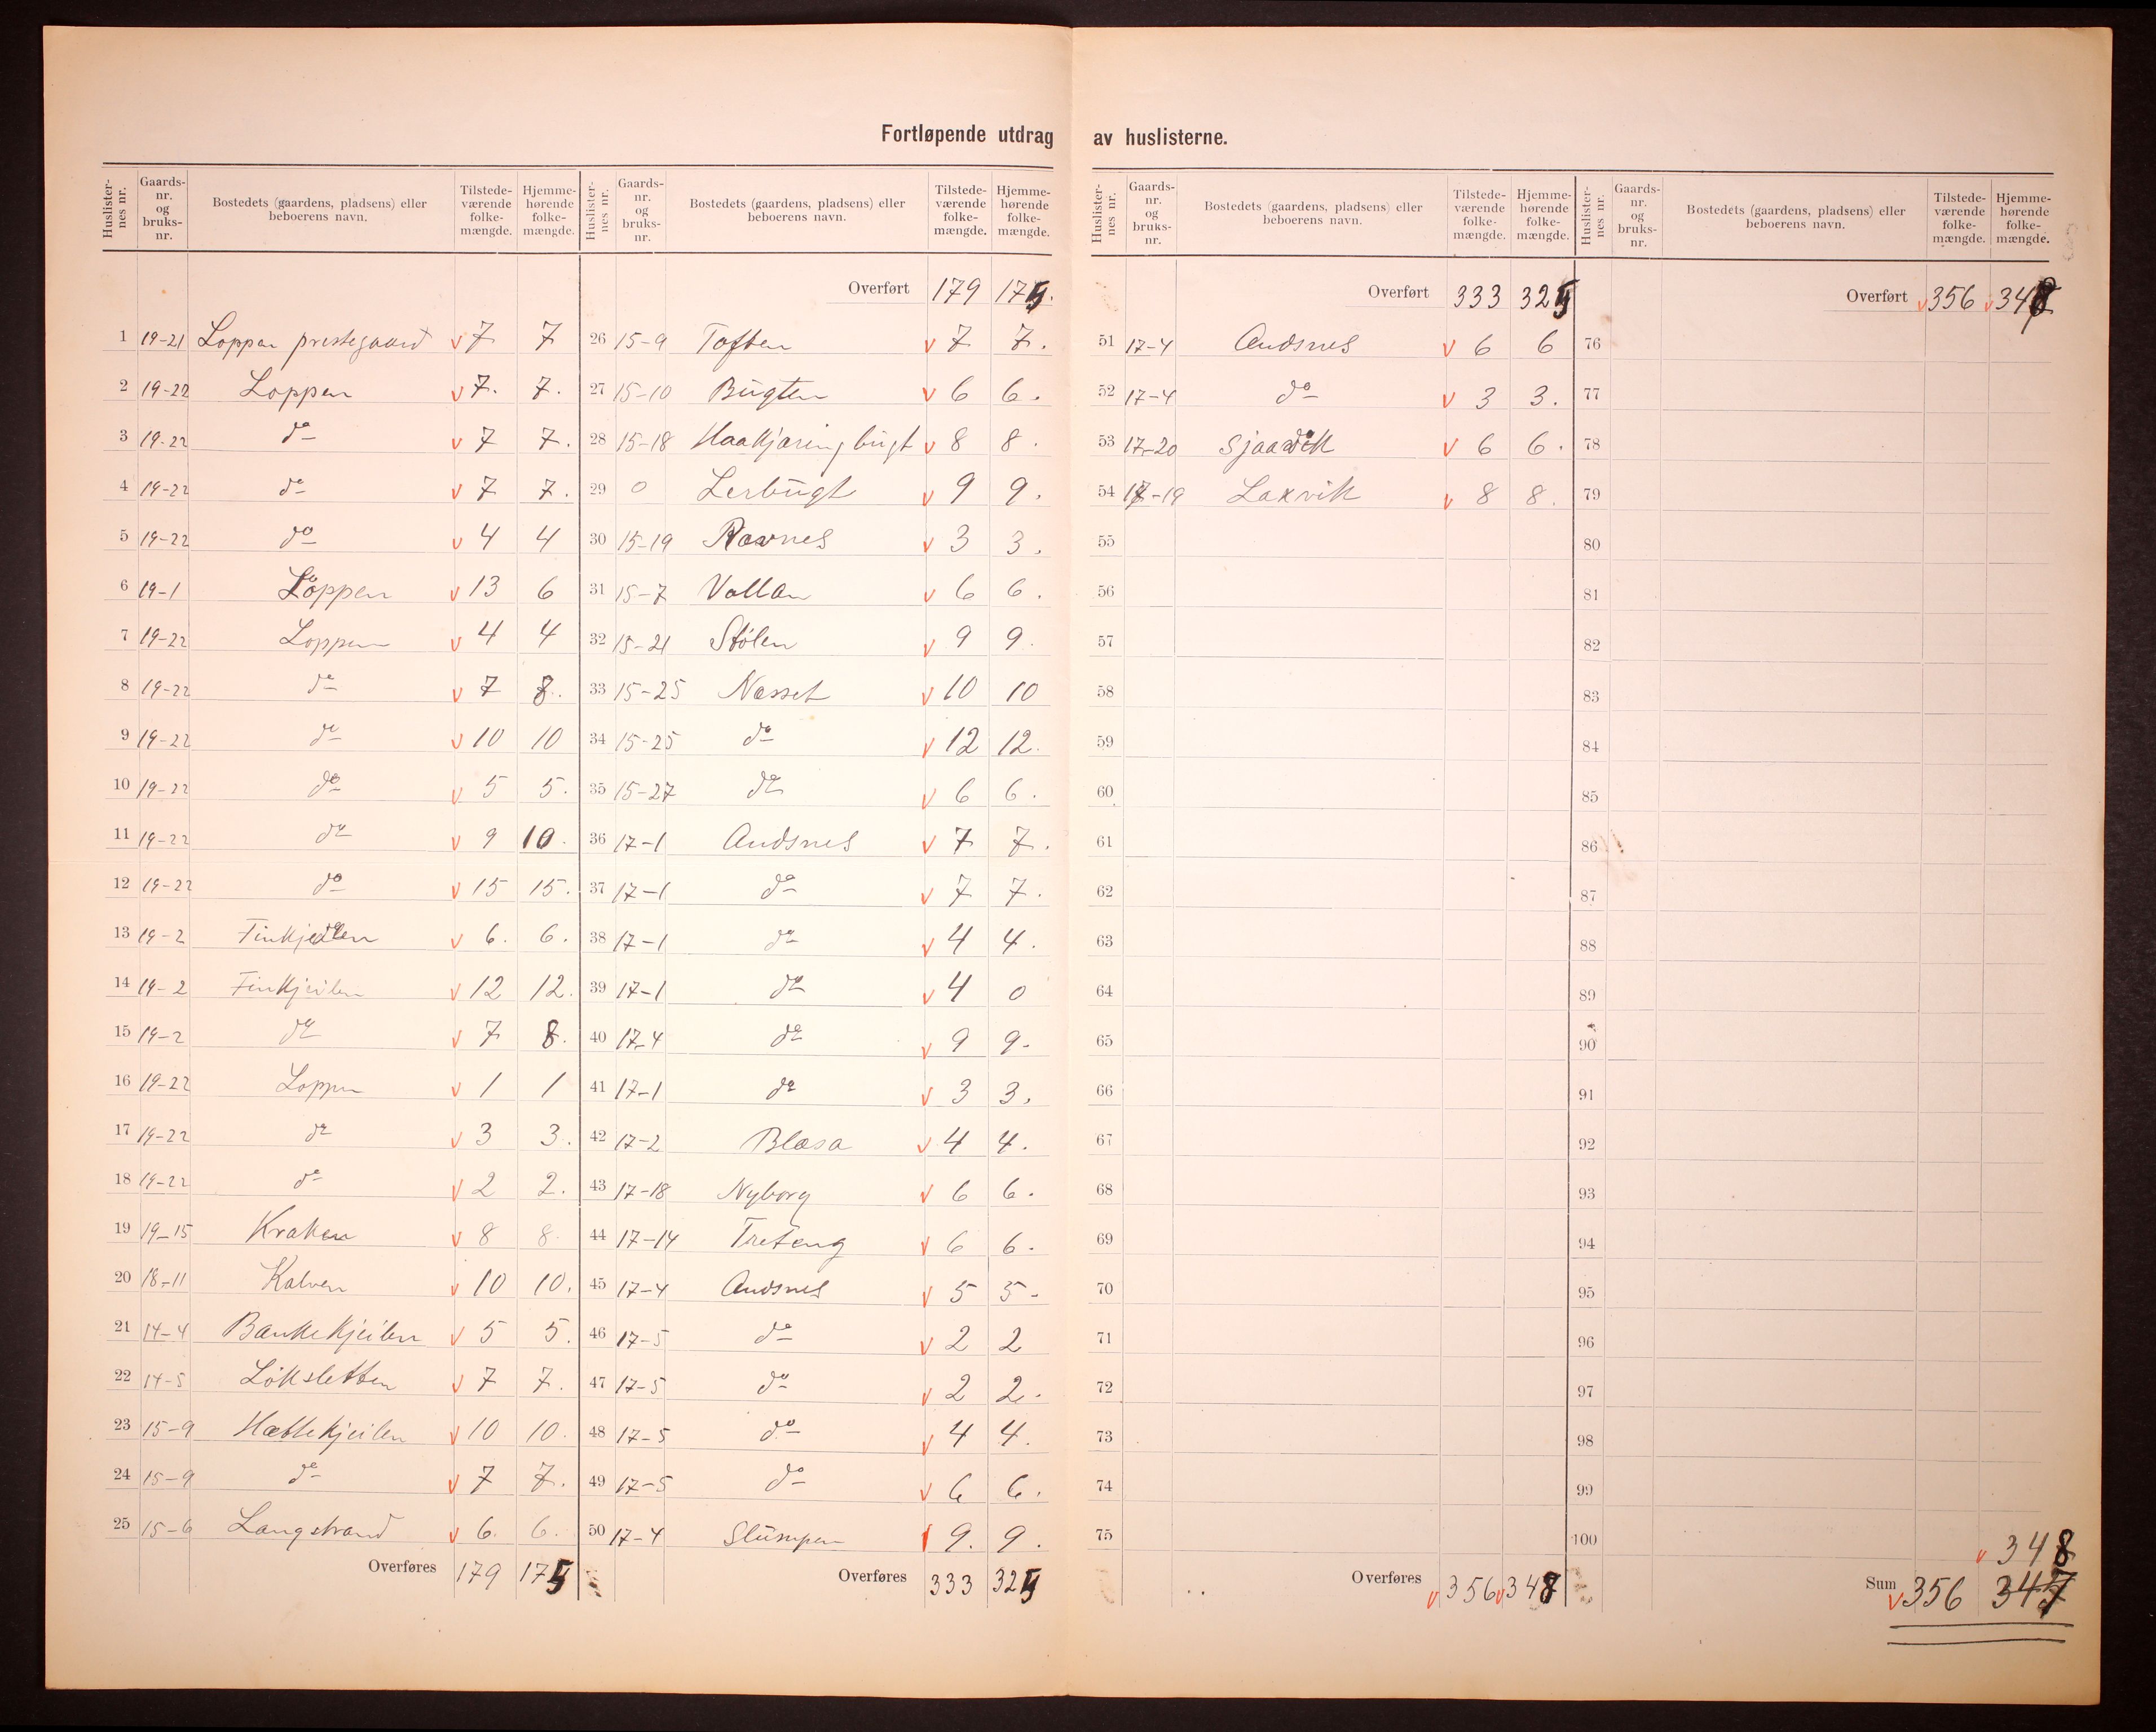 Fortløpende utdrag av huslisterne.
Huslisternes nr. Gaardsnr. og bruksnr. Bostedets (gaardens, pladsens) eller beboerens navn. Tilstedeværende folkemængde. Hjemmehørende folkemængde.
1 19-21 Loppen prestegaard v 7 7
2 19-22 Loppen v 7. 7.
3 19-22 do v 7 7.
4 19-22 do v 7 7.
5 19-22 do v 4 4
6 19-1 Loppen v 13 6
7 19-22 Loppen v 4 4
8 19-22 do v 7 8.
9 19-22 do v 10 10
10 19-22 do v 5 5.
11 19-22 do v 9 10.
12 19-22 do v 15 15.
13 19-2 Finkjeilen v 6. 6.
14 19-2 Finkjeilen v 12 12.
15 19-2 do v 7 8.
16 19-22 Loppen v 1 1
17 19-22 do v 3 3.
18 19-22 do v 2 2.
19 19-15 Kraken v 8 8.
20 18-11 Kalven v 10 10.
21 14-4 Bankekjeilen v 5 5.
22 14-5 Löksletten v 7 7.
23 15-9 Hættekjeilen v 10 10.
24 15-9 do v 7 7.
25 15-6 Langstrand v 6. 6.
Overføres 179 175
Huslisternes nr. Gaardsnr. og bruksnr. Bostedets (gaardens, pladsens) eller beboerens navn. Tilstedeværende folkemængde. Hjemmehørende folkemængde.
Overført 179 175.
26 15-9 Toften v 7 7.
27 15-10 Bugten v 6 6.
28 15-18 Haakjæringbugt v 8 8.
29 0 Lerbugt v 9 9.
30 15-19 Ravnes v 3 3.
31 15-7 Vollan v 6 6.
32 15-21 Stólen v 9 9.
33 15-25 Næsset v 10 10
34 15-25 do v 12 12.
35 15-27 do v 6 6.
36 17-1 Andsnes v 7 7.
37 17-1 do v 7 7.
38 17-1 do v 4 4.
39 17-1 do v 4 0
40 17-4 do v 9 9.
41 17-1 do v 3 3.
42 17-2 Blæsa v 4 4.
43 17-18 Nyborg v 6 6.
44 17-14 Treteng v 6 6.
45 17-4 Andsnes v 5 5-
46 17-5 do v 2 2
47 17-5 do v 2 2.
48 17-5 do v 4 4.
49 17-5 do v 6 6.
50 17-4 Slumpen 9. 9.
Overføres 333 325
Huslisternes nr. Gaardsnr. og bruksnr. Bostedets (gaardens, pladsens) eller beboerens navn. Tilstedeværende folkemængde. Hjemmehørende folkemængde.
Overført 333 325
51 17-4 Andsnes v 6 6
52 17-4 do v 3 3.
53 17-20 v 6 6.
54 17-19 Laxvik v 8 8.
55
56
57
58
59
60
61
62
63
64
65
66
67
68
69
70
71
72
73
74
75
Overføres v 356 v 348
Huslisternes nr. Gaardsnr. og bruksnr. Bostedets (gaardens, pladsens) eller beboerens navn. Tilstedeværende folkemængde. Hjemmehørende folkemængde.
Overført v 356 v 348
76
77
78
79
80
81
82
83
84
85
86
87
88
89
90
91
92
93
94
95
96
97
98
99
100
v 348
Sum v 356 347